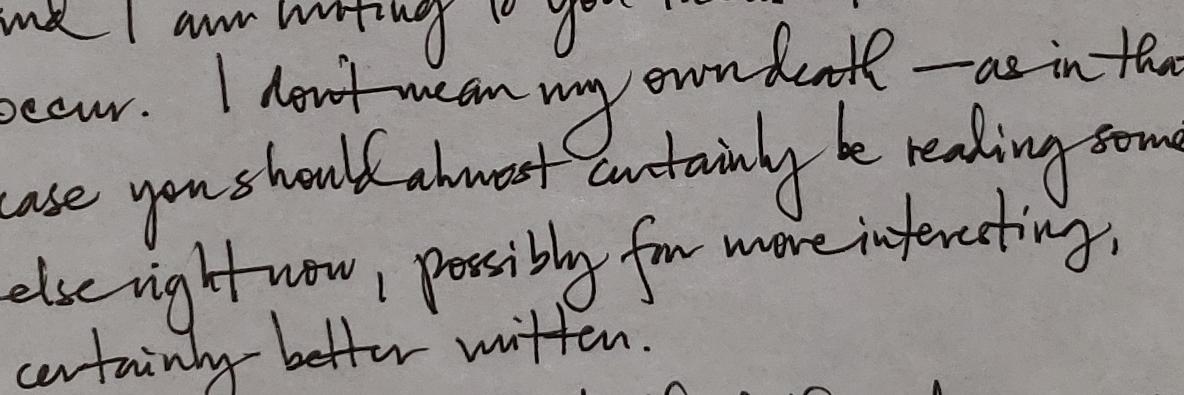 I am writing to you
occur. I don't mean my own death — as in tha
case you should almost certainly be reading some
else right now, possibly far more interesting,
certainly better written.